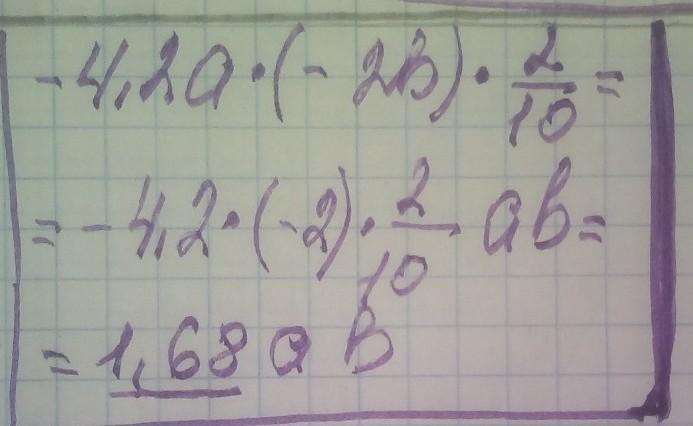 -4,2a·(-2b)·2/10=
=-4,2·(-2)·2/10·ab=
=1,68ab